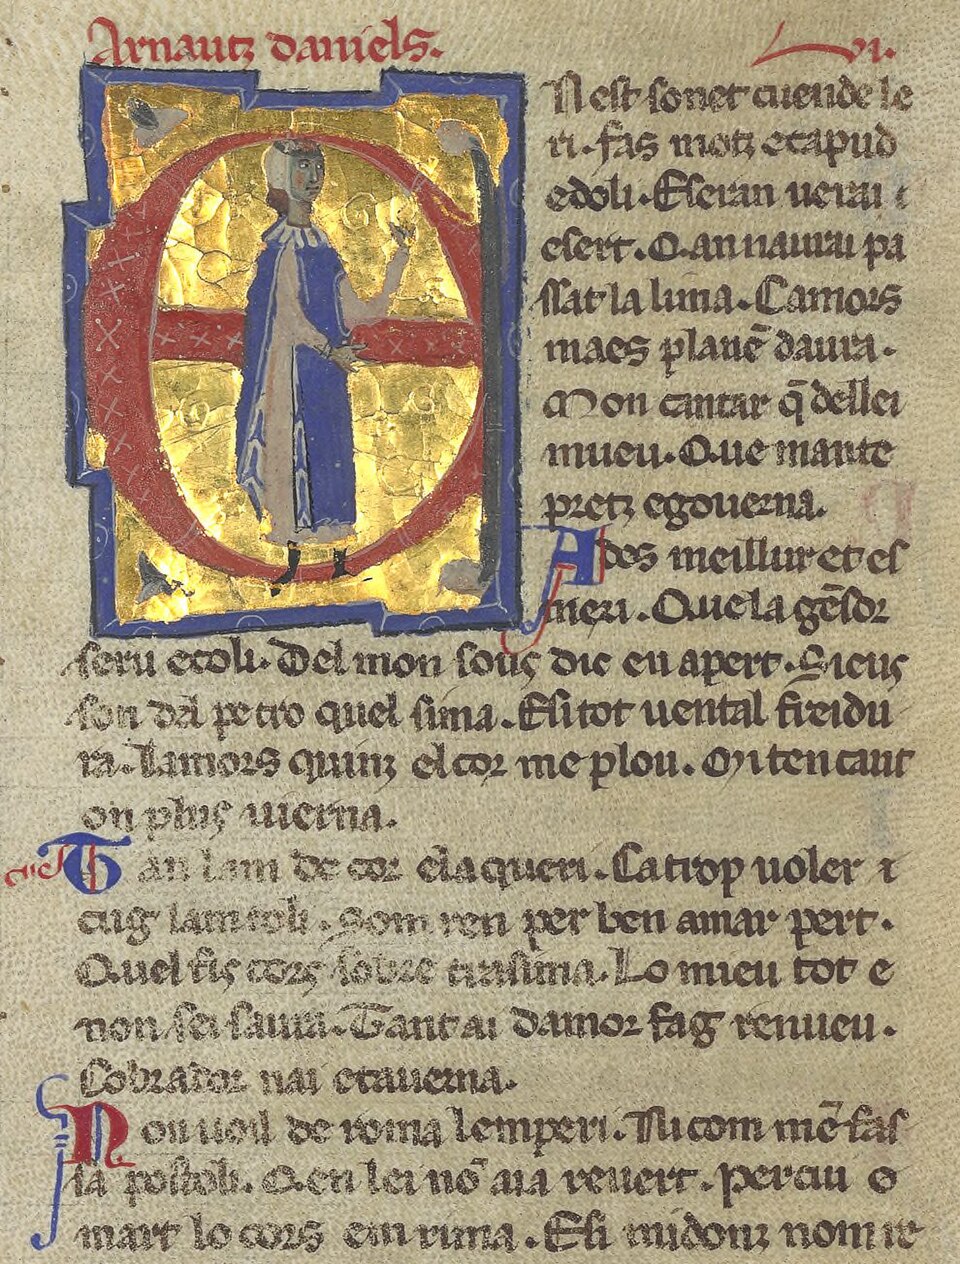 Arnautz daniels. .lvi.
EN est sonet cuende le
ri. fas motz e capud
e doli. E seran uerai ⁊
e sert. Q.an naurai pa
ssat la lima. Camors
maes planẽ daura.
Mon cantar q̃ dellei
mueu. Que mante
pretz e gouerna.
Ades meillur et es
meri. Que la gẽsor
seru e coli. Del mon sous dic en apert. Sieus
son dal pe tro quel sima. E si tot uental freidu
ra. Lamors quinz el cor me plou. Mi ten caut
on plus uierna.
Tan lam de cor e la queri. Ca trop uoler ⁊
cug lam toli. Som ren per ben amar pert.
Quel sis cors sobre trasima. Lo mieu tot e
non sei saura. Tant ai damor fag renueu.
Cobrador nai e tauerna.
Non uoil de roma lemperi. Ni com mẽ fas
la postoli. Q.en lei nõ aia reuert. Per cui o
mart lo cors em rima. E si midonz nom re